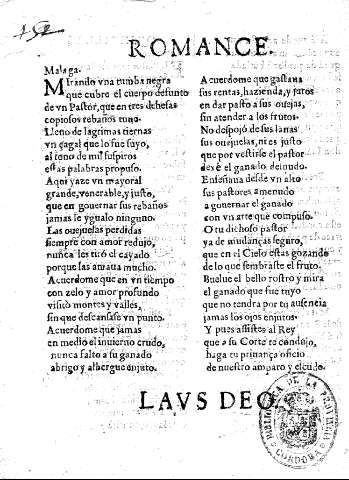 152
ROMANCE.
Malaga.
Mirando vna tumba negra
que cubre el cuerpo defunto
de vn Pastor, que en tres dehesas
copiosos rebaños tuuo.
Lleno de lagrimas tiernas
vn çagal que lo fue suyo,
al tono de mil suspiros
estas palabras propuso.
Aqui yaze vn mayoral
grande, venerable, y justo,
que en gouernar sus rebaños
jamas le ygualo ninguno.
Las ouejuelas perdidas
siempre con amor redujo,
nunca les tirô el cayado
porque las amaua mucho.
Acuerdome que en vn tiempo
con zelo y amor profundo
visitò montes y valles,
sin que descansase vn punto.
Acuerdome que jamas
en medio el inuierno crudo,
nunca faltò a su ganado
abrigo y albergue enjuto.
Acuerdome que gastaua
sus rentas, hazienda, y juros
en dar pasto a sus ouejas,
sin atender a los frutos.
No despojó de sus lanas
sus ouejuelas, ni es justo
que por vestirse el pastor
dexe el ganado desnudo.
Enseñaua desde vn alto
sus pastores a menudo
a gouernar el ganado
con vn arte que compuso.
O tu dichoso pastor
ya de mudanças seguro,
que en el Cielo estas gozando
de lo que sembraste el fruto.
Buelue el bello rostro y mira
el ganado que fue tuyo
que no tendra por tu ausencia
jamas los ojos enjutos.
Y pues assistes al Rey
que a su Corte te condujo,
haga tu priuança oficio
de nuestro amparo y escudo.
LAVS DEO.
BIBLIOTECA DE LA PROVINCIA
CORDOBA